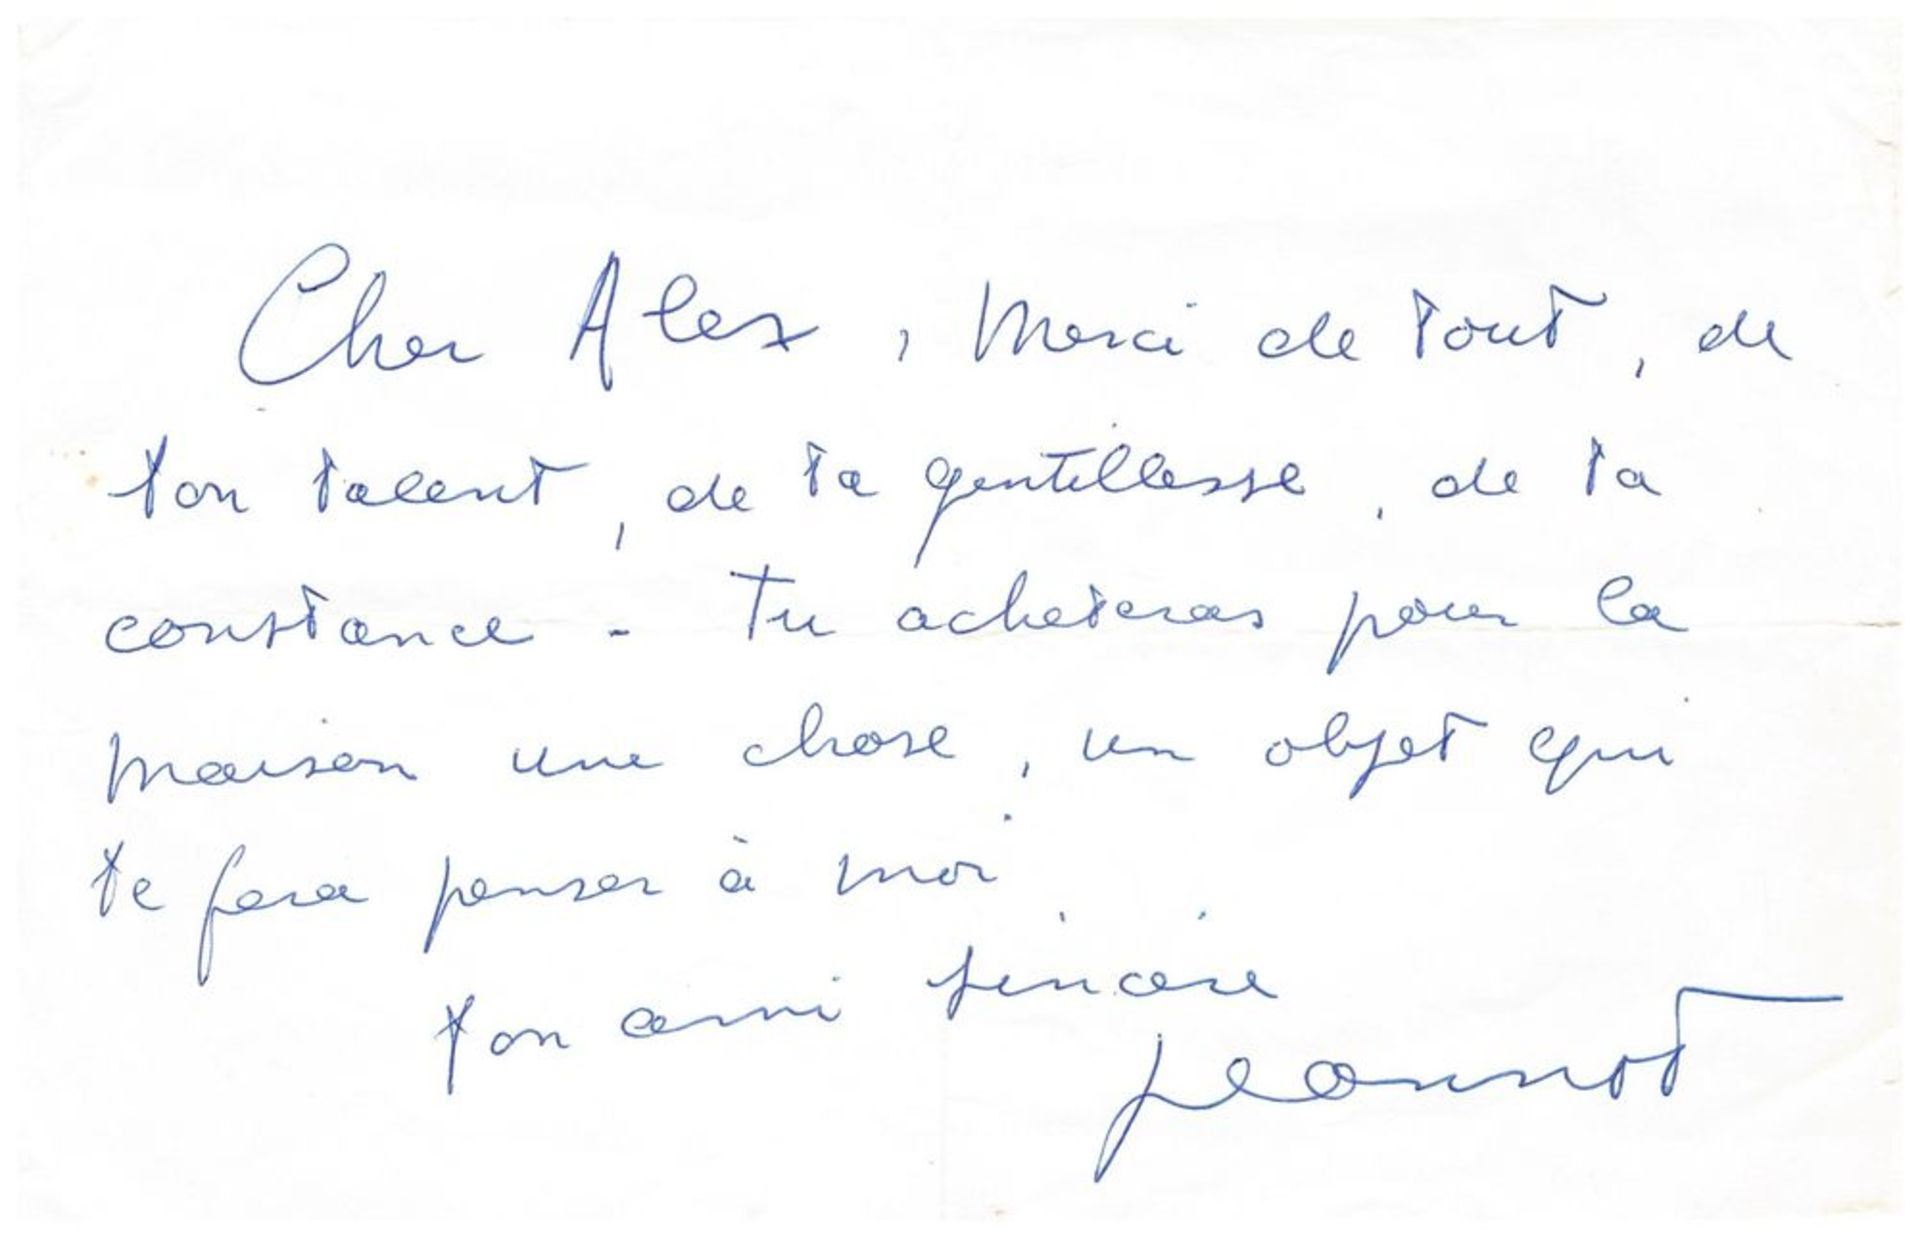 Cher Alex, Merci de tout, de
ton talent, de ta gentillesse, de ta
constance - Tu acheteras pour la
maison une chose, un objet qui
te fera penser à moi
ton ami sincère
Jeannot